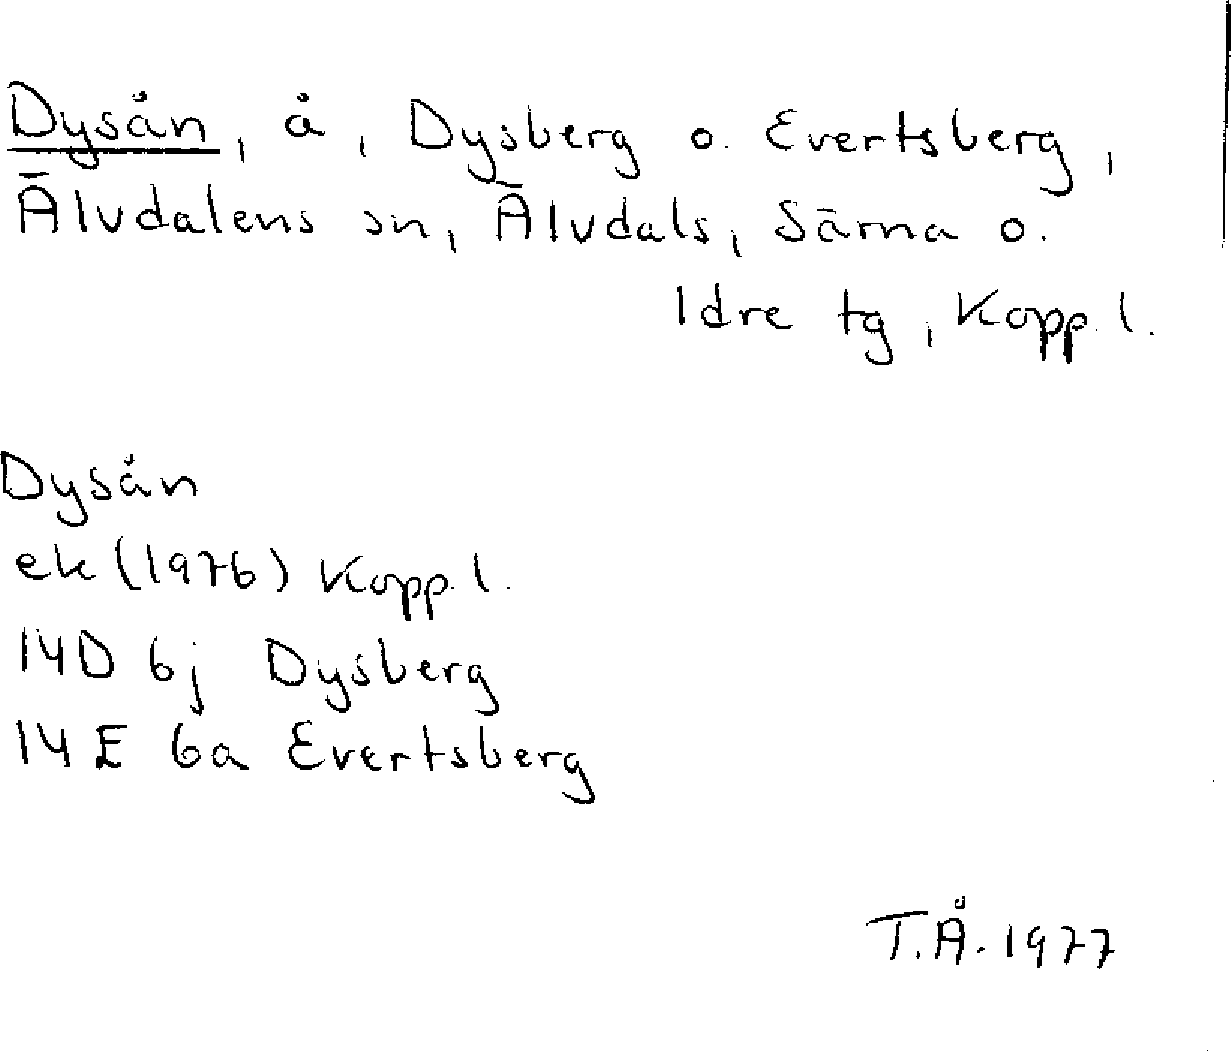 Dysån, å, Dysberg o. Evertsberg,
Älvdalens sn, Älvdals, Särna o.
Idre tg, Kopp. l.
Dysån
ek (1976) Kopp. l.
14D 6j Dysberg
14E 6a Evertsberg
T.Å. 1977